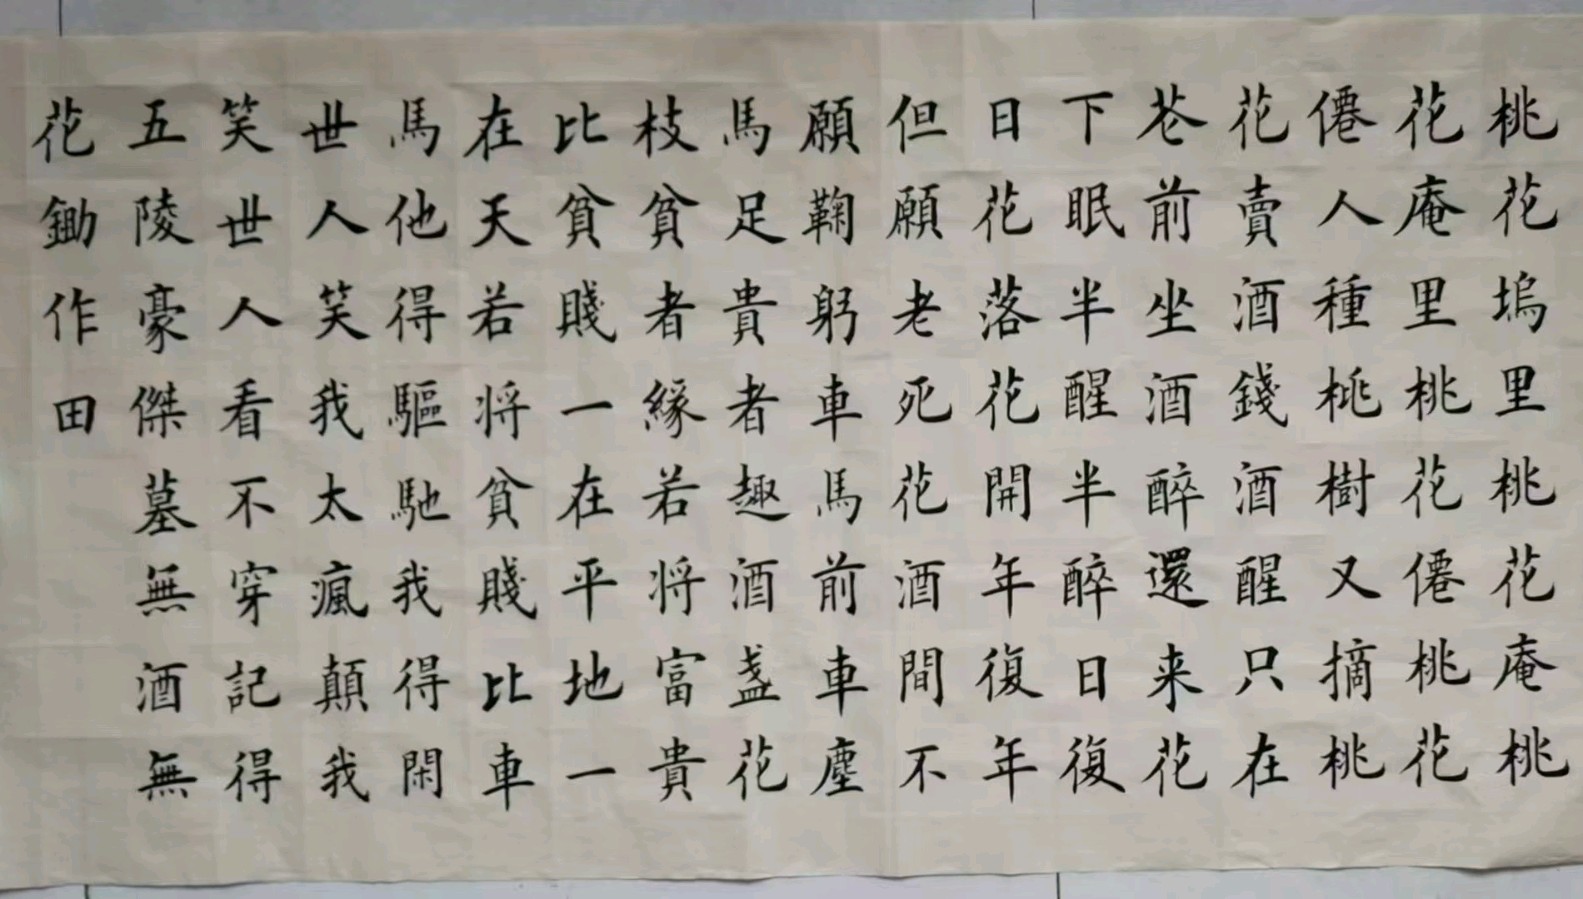 桃花塢里桃花庵桃
花庵里桃花僊桃花
僊人種桃樹又摘桃
花賣酒錢酒醒只在
花前坐酒醉還来花
下眠半醒半醉日復
日花落花開年復年
但願老死花酒間不
願鞠躬車馬前車塵
馬足貴者趣酒盞花
枝貧者緣若將富貴
比貧賤一在平地一
在天若將貧賤比車
馬他得驅馳我得閑
世人笑我太瘋顛我
笑世人看不穿記得
五陵豪傑墓無酒無
花鋤作田